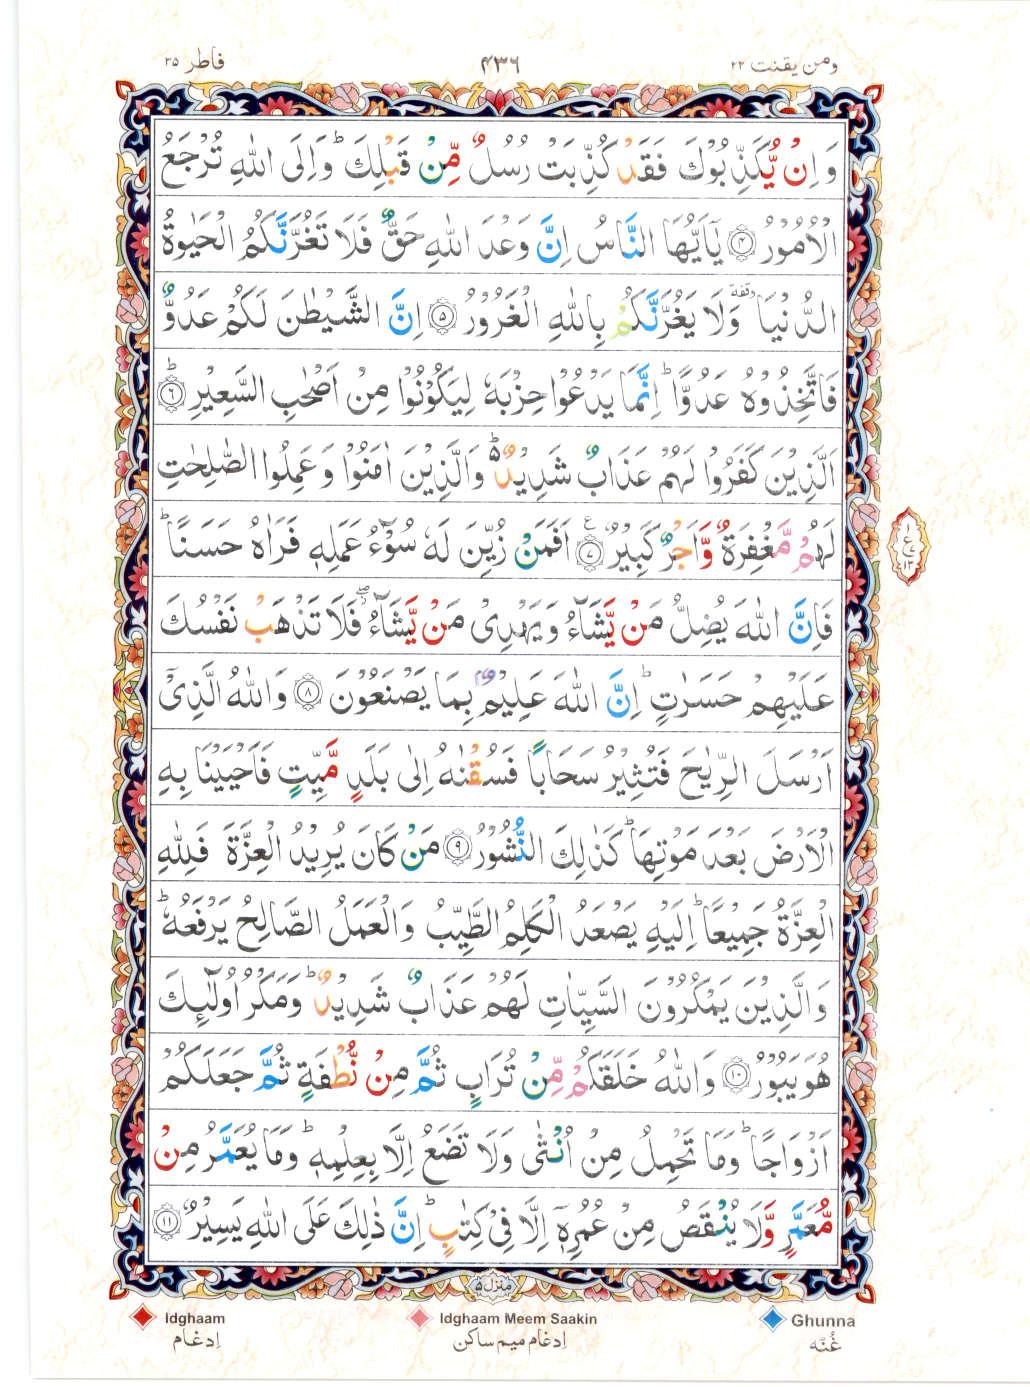 ومن يقنت ٢٢
۴۳۶
فاطر ٣۵
وَ اِنْ يُّكَذِّبُوْكَ فَقَدْ كُذِّبَتْ رُسُلٌ مِّنْ قَبْلِكَ ؕ وَاِلَى اللّٰهِ تُرْجَعُ
الْاُمُوْرُ ۝۴ يٰۤاَيُّهَا النَّاسُ اِنَّ وَعْدَ اللّٰهِ حَقٌّ فَلَا تَغُرَّنَّكُمُ الْحَيٰوةُ
الدُّنْيَا ۥ وقفة وَلَا يَغُرَّنَّكُمْ بِاللّٰهِ الْغَرُوْرُ ۝۵ اِنَّ الشَّيْطٰنَ لَكُمْ عَدُوٌّ
فَاتَّخِذُوْهُ عَدُوًّا ؕ اِنَّمَا يَدْعُوْا حِزْبَهٗ لِيَكُوْنُوْا مِنْ اَصْحٰبِ السَّعِيْرِ ؕ ۝۶
اَلَّذِيْنَ كَفَرُوْا لَهُمْ عَذَابٌ شَدِيْدٌ ؕ۬ وَالَّذِيْنَ اٰمَنُوْا وَعَمِلُوا الصّٰلِحٰتِ
لَهُمْ مَّغْفِرَةٌ وَّاَجْرٌ كَبِيْرٌ ۝۷ ع اَفَمَنْ زُيِّنَ لَهٗ سُوْٓءُ عَمَلِهٖ فَرَاٰهُ حَسَنًا ؕ
فَاِنَّ اللّٰهَ يُضِلُّ مَنْ يَّشَآءُ وَيَهْدِىْ مَنْ يَّشَآءُ ۖ فَلَا تَذْهَبْ نَفْسُكَ
عَلَيْهِمْ حَسَرٰتٍ ؕ اِنَّ اللّٰهَ عَلِيْمٌۢ بِمَا يَصْنَعُوْنَ ۝۸ وَاللّٰهُ الَّذِىْۤ
اَرْسَلَ الرِّيٰحَ فَتُثِيْرُ سَحَابًا فَسُقْنٰهُ اِلٰى بَلَدٍ مَّيِّتٍ فَاَحْيَيْنَا بِهِ
الْاَرْضَ بَعْدَ مَوْتِهَا ؕ كَذٰلِكَ النُّشُوْرُ ۝۹ مَنْ كَانَ يُرِيْدُ الْعِزَّةَ فَلِلّٰهِ
الْعِزَّةُ جَمِيْعًا ؕ اِلَيْهِ يَصْعَدُ الْكَلِمُ الطَّيِّبُ وَالْعَمَلُ الصَّالِحُ يَرْفَعُهٗ ؕ
وَالَّذِيْنَ يَمْكُرُوْنَ السَّيِّاٰتِ لَهُمْ عَذَابٌ شَدِيْدٌ ؕ وَمَكْرُ اُولٰٓئِكَ
هُوَ يَبُوْرُ ۝۱۰ وَاللّٰهُ خَلَقَكُمْ مِّنْ تُرَابٍ ثُمَّ مِنْ نُّطْفَةٍ ثُمَّ جَعَلَكُمْ
اَزْوَاجًا ؕ وَمَا تَحْمِلُ مِنْ اُنْثٰى وَلَا تَضَعُ اِلَّا بِعِلْمِهٖ ؕ وَمَا يُعَمَّرُ مِنْ
مُّعَمَّرٍ وَّلَا يُنْقَصُ مِنْ عُمُرِهٖۤ اِلَّا فِىْ كِتٰبٍ ؕ اِنَّ ذٰلِكَ عَلَى اللّٰهِ يَسِيْرٌ ۝۱۱
منزل ۵
Idghaam
Idghaam Meem Saakin
Ghunna
اِدغام
اِدغام ميم ساكن
غُنّه